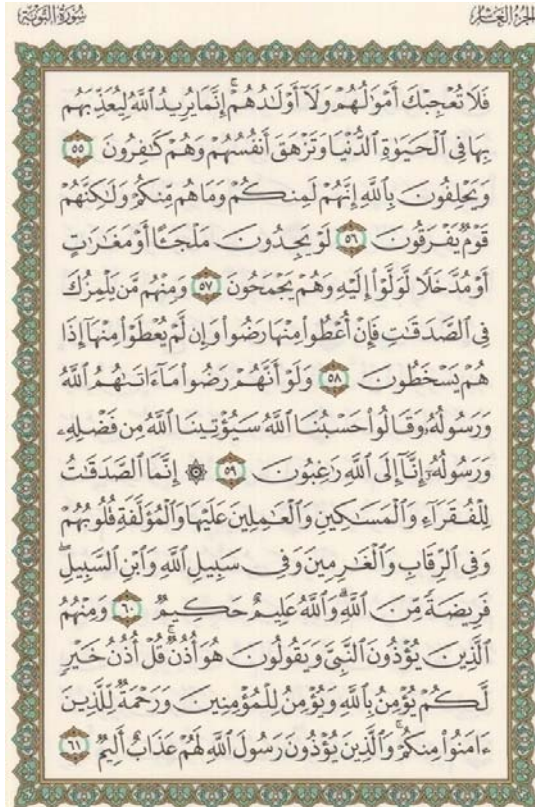 سُورَةُ التَّوْبَةِ
الجُزْءُ العَاشِرُ
فَلَا تُعۡجِبۡكَ أَمۡوَٰلُهُمۡ وَلَآ أَوۡلَٰدُهُمۡۚ إِنَّمَا يُرِيدُ ٱللَّهُ لِيُعَذِّبَهُم
بِهَا فِي ٱلۡحَيَوٰةِ ٱلدُّنۡيَا وَتَزۡهَقَ أَنفُسُهُمۡ وَهُمۡ كَٰفِرُونَ ٥٥
وَيَحۡلِفُونَ بِٱللَّهِ إِنَّهُمۡ لَمِنكُمۡ وَمَا هُم مِّنكُمۡ وَلَٰكِنَّهُمۡ
قَوۡمٞ يَفۡرَقُونَ ٥٦ لَوۡ يَجِدُونَ مَلۡجَـًٔا أَوۡ مَغَٰرَٰتٍ
أَوۡ مُدَّخَلٗا لَّوَلَّوۡاْ إِلَيۡهِ وَهُمۡ يَجۡمَحُونَ ٥٧ وَمِنۡهُم مَّن يَلۡمِزُكَ
فِي ٱلصَّدَقَٰتِ فَإِنۡ أُعۡطُواْ مِنۡهَا رَضُواْ وَإِن لَّمۡ يُعۡطَوۡاْ مِنۡهَآ إِذَا
هُمۡ يَسۡخَطُونَ ٥٨ وَلَوۡ أَنَّهُمۡ رَضُواْ مَآ ءَاتَىٰهُمُ ٱللَّهُ
وَرَسُولُهُۥ وَقَالُواْ حَسۡبُنَا ٱللَّهُ سَيُؤۡتِينَا ٱللَّهُ مِن فَضۡلِهِۦ
وَرَسُولُهُۥٓ إِنَّآ إِلَى ٱللَّهِ رَٰغِبُونَ ٥٩ ۞ إِنَّمَا ٱلصَّدَقَٰتُ
لِلۡفُقَرَآءِ وَٱلۡمَسَٰكِينِ وَٱلۡعَٰمِلِينَ عَلَيۡهَا وَٱلۡمُؤَلَّفَةِ قُلُوبُهُمۡ
وَفِي ٱلرِّقَابِ وَٱلۡغَٰرِمِينَ وَفِي سَبِيلِ ٱللَّهِ وَٱبۡنِ ٱلسَّبِيلِۖ
فَرِيضَةٗ مِّنَ ٱللَّهِۗ وَٱللَّهُ عَلِيمٌ حَكِيمٞ ٦٠ وَمِنۡهُمُ
ٱلَّذِينَ يُؤۡذُونَ ٱلنَّبِيَّ وَيَقُولُونَ هُوَ أُذُنٞۚ قُلۡ أُذُنُ خَيۡرٖ
لَّكُمۡ يُؤۡمِنُ بِٱللَّهِ وَيُؤۡمِنُ لِلۡمُؤۡمِنِينَ وَرَحۡمَةٞ لِّلَّذِينَ
ءَامَنُواْ مِنكُمۡۚ وَٱلَّذِينَ يُؤۡذُونَ رَسُولَ ٱللَّهِ لَهُمۡ عَذَابٌ أَلِيمٞ ٦١